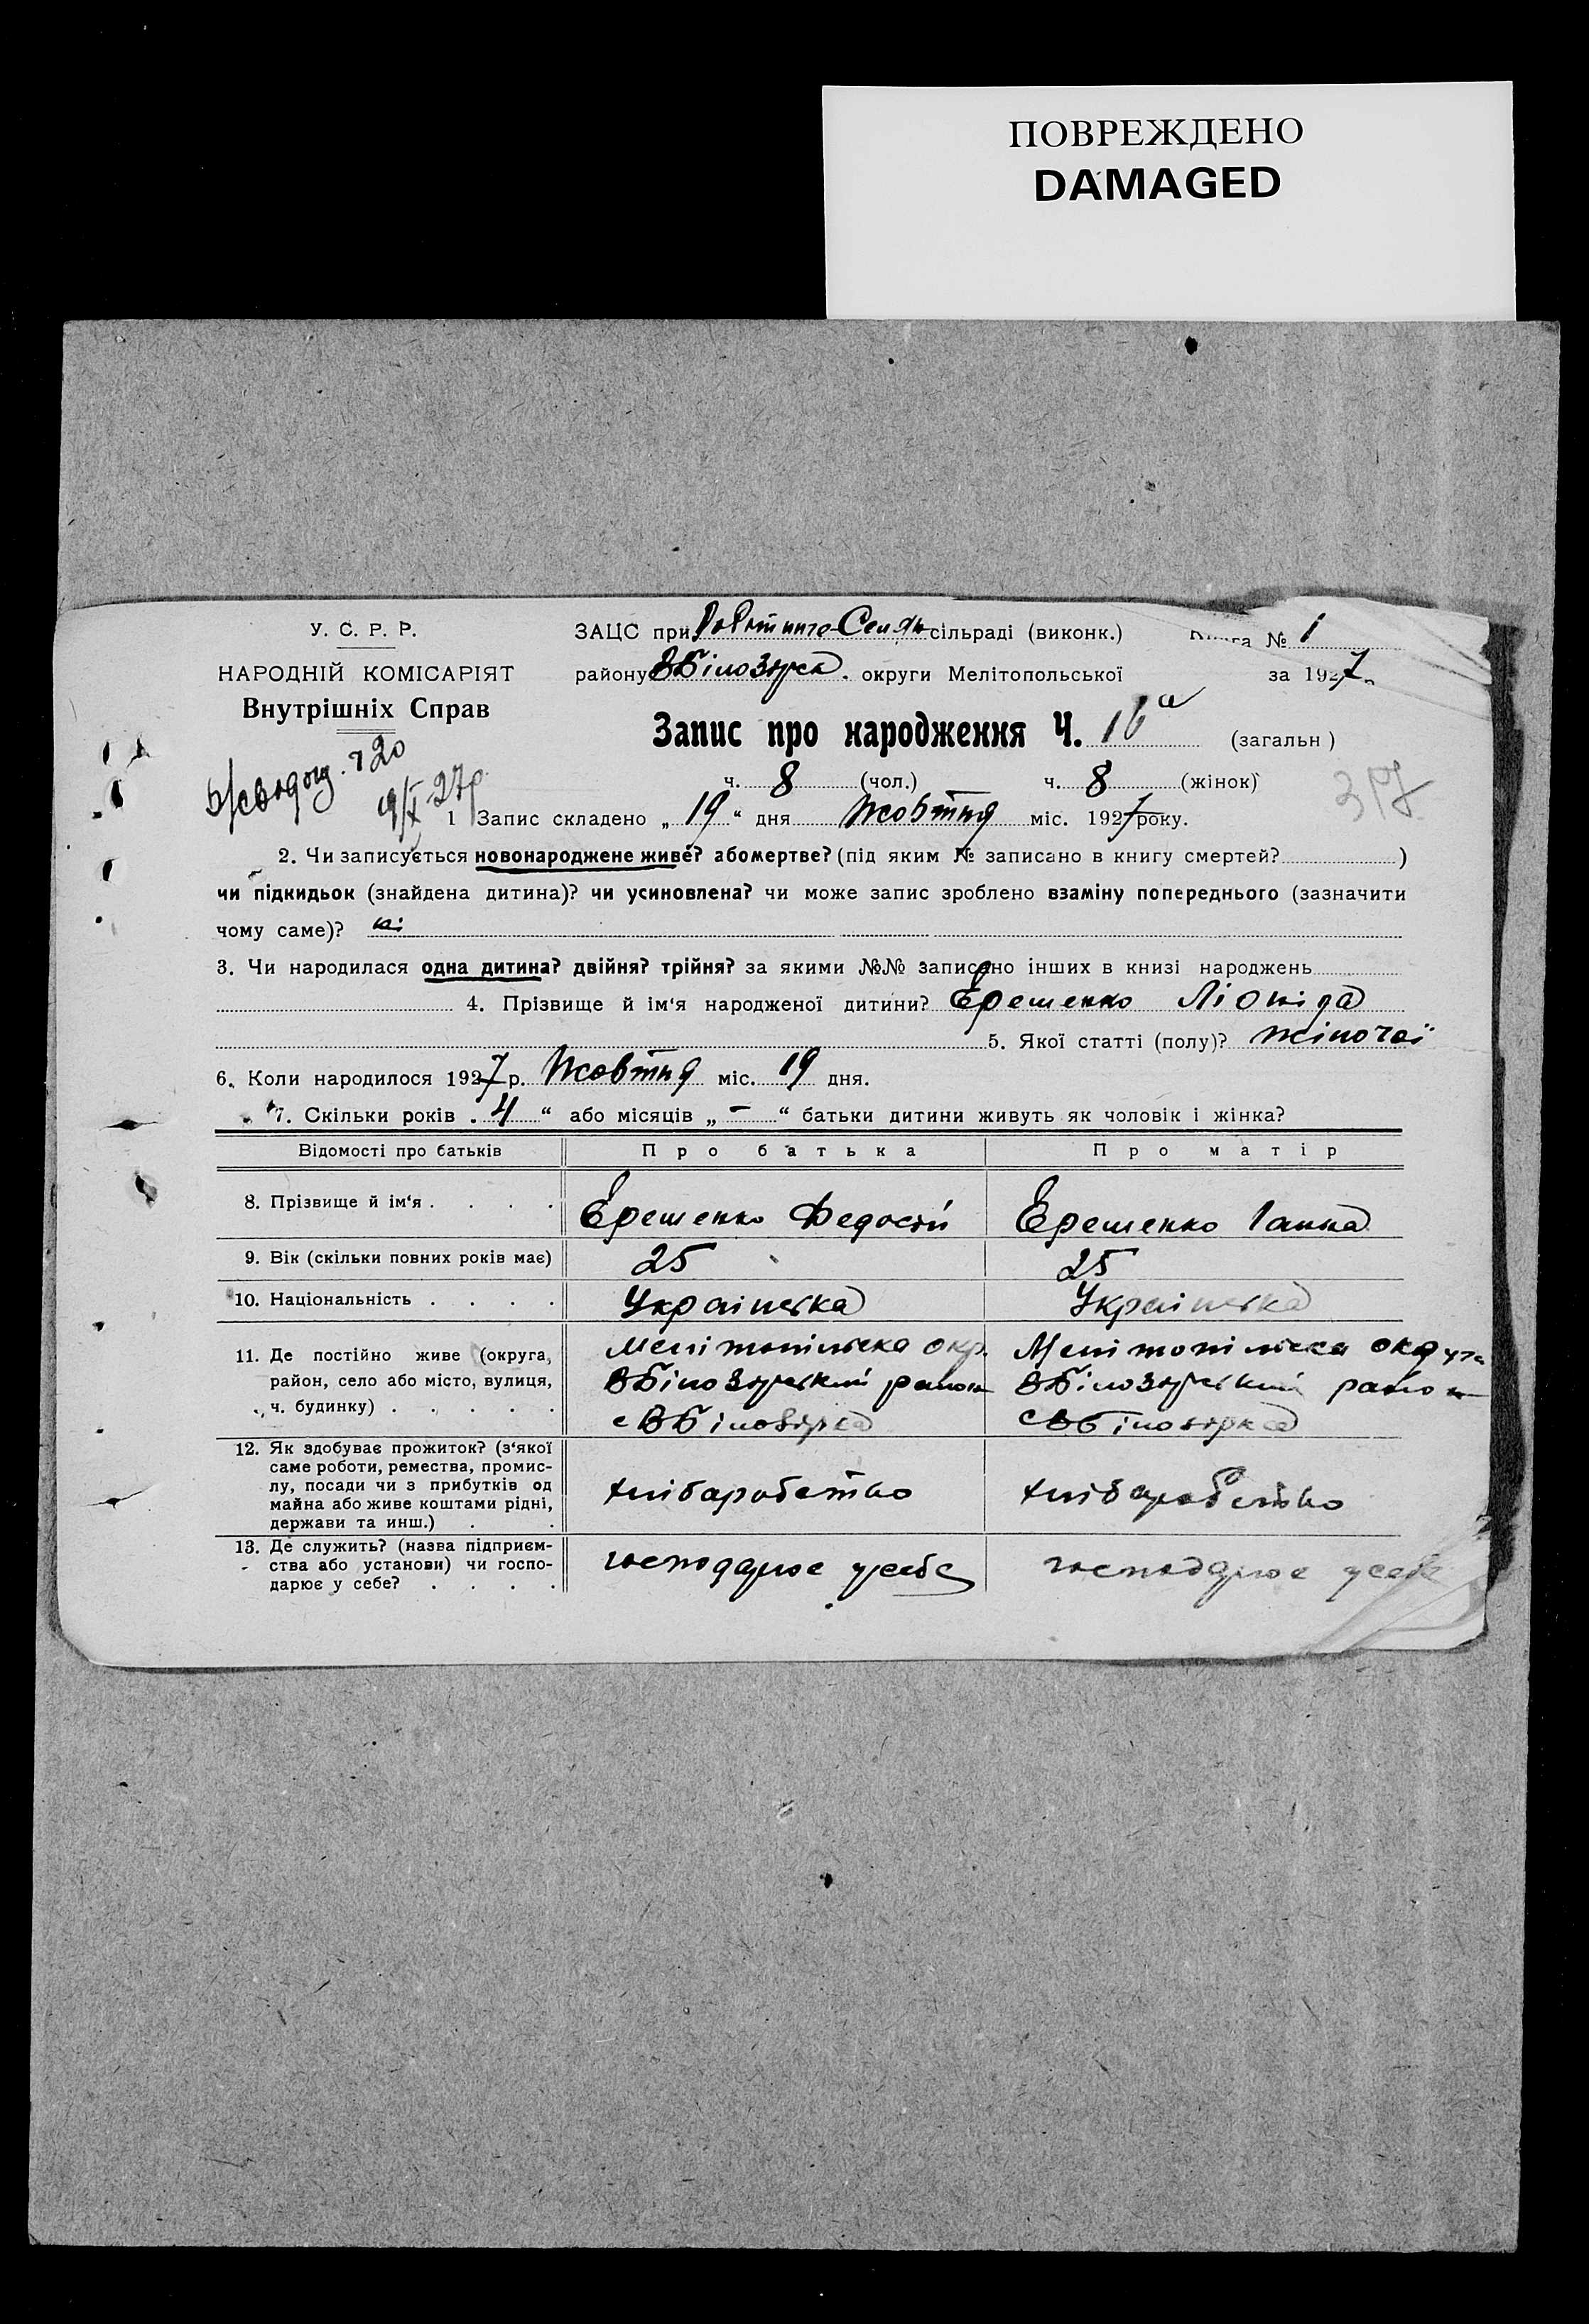 ПОВРЕЖДЕНО
DAMAGED
У. С. Р. Р.
НАРОДНІЙ КОМІСАРІЯТ
Внутрішніх Справ
ЗАЦС при сільраді (виконк.)
Книга № 1
району ВБілозірка. округи Мелітопольської
за 1927
Запис про народження Ч. 16а (загальн)
ч. 8 (чол.) ч. 8 (жінок)
№ 20
19/X 27р
317
1 Запис складено „ 19 “ дня Жовтня міс. 1927 року.
2. Чи записується новонароджене живе? або мертве? (під яким № записано в книгу смертей? )
чи підкидьок (знайдена дитина)? чи усиновлена? чи може запис зроблено взаміну попереднього (зазначити
чому саме)? ні
3. Чи народилася одна дитина? двійня? трійня? за якими №№ записано інших в книзі народжень
4. Прізвище й ім‘я народженої дитини? Єрешенко Ліоніда
5. Якої статті (полу)? жіночої
6. Коли народилося 1927 р. Жовтня міс. 19 дня.
7. Скільки років „ 4 “ або місяців „ - “ батьки дитини живуть як чоловік і жінка?
Відомості про батьків Про батька Про матір
8. Прізвище й ім‘я . . . . Єрешенко Федосій Єрешенко Ганна
9. Вік (скільки повних років має) 25 25
10. Національність . . . . Українська Українська
11. Де постійно живе (округа,
район, село або місто, вулиця,
ч. будинку) . . . . .
Мелітопільска окр. Мелітопільска округа
ВБілозірський район ВБілозірський район
с ВБілозірка с ВБілозірка
12. Як здобуває прожиток? (з‘якої
саме роботи, ремества, промис-
лу, посади чи з прибутків од
майна або живе коштами рідні,
держави та инш.) . .
хліборобство хліборобство
13. Де служить? (назва підприєм-
ства або установи) чи госпо-
дарює у себе? . . . .
господарює у себе господарює у себе